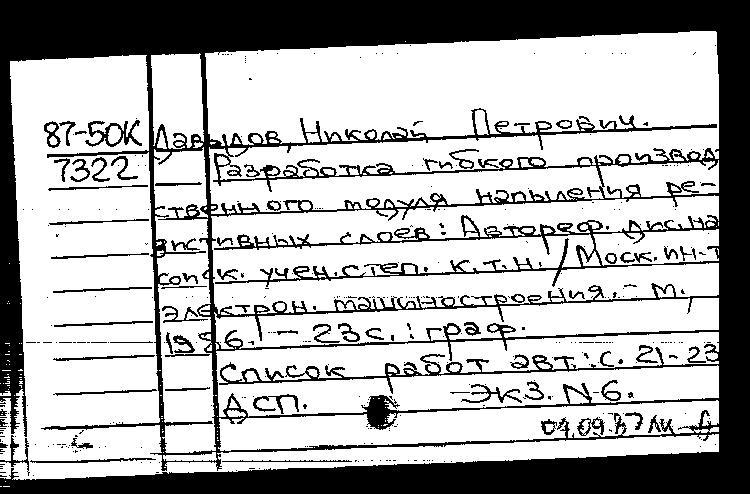 87-50К Давыдов, Николай Петрович.
7322 Разработка гибкого производ-
ственного модуля напыления ре-
зистивных слоев: Автореф. дис. на
соиск. учен. степ. к.т.н. / Моск. ин-т
электрон. машиностроения. - М.,
1986. - 23 с. : граф.
Список работ авт.: с. 21-23
ДСП. Экз. N 6.
04.09.87